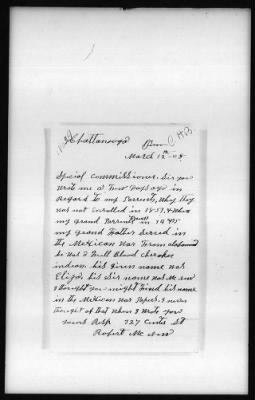 Chattanooga Tenn
March 12th - 08
Special Commissioner. Sir you
wrote me a few days ago in
Regard to my Parrents, Why they
was not Enrolled in 1851, & When
my grand Parrents
my grand Father Served in
the Mexican War From
he Was a Full Blood cherokee
indian. his given name was
Elija his Sir name
thought you might Find his name
in the Mexican War Papers. I never
thought of that when I wrote you
yours Resp 727 St
Robert